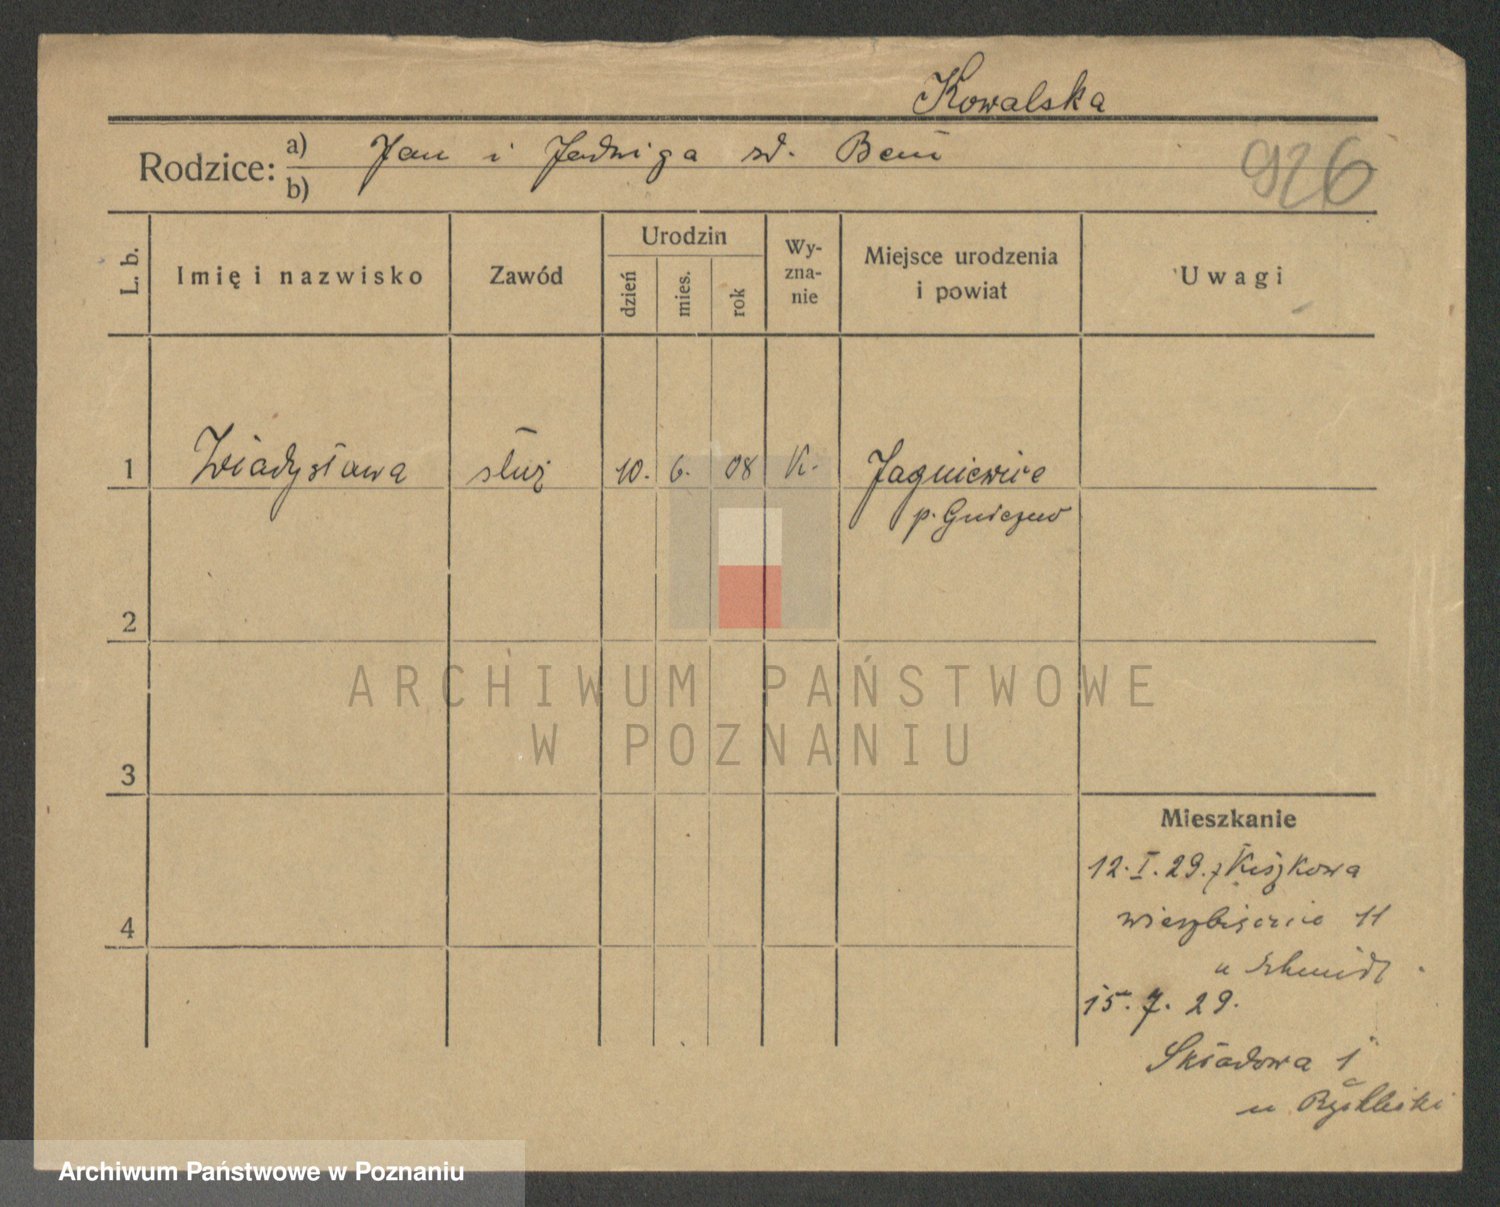 Kowalska
Rodzice: a) Jan i Jadwiga zd. Bem
b)
926
L. b.
Imię i nazwisko
Zawód
Urodzin
dzień
mies.
rok
Wy-
zna-
nie
Miejsce urodzenia
i powiat
Uwagi
1 Władysława służ 10. 6. 08 K. Jagniewice
p. Gniezno
2
3
4
ARCHIWUM PAŃSTWOWE
W POZNANIU
Mieszkanie
12. I. 29. z Kiszkowa
Wierzbięcice 11
u Schmidt
15. 7. 29.
Składowa 1
u
Archiwum Państwowe w Poznaniu